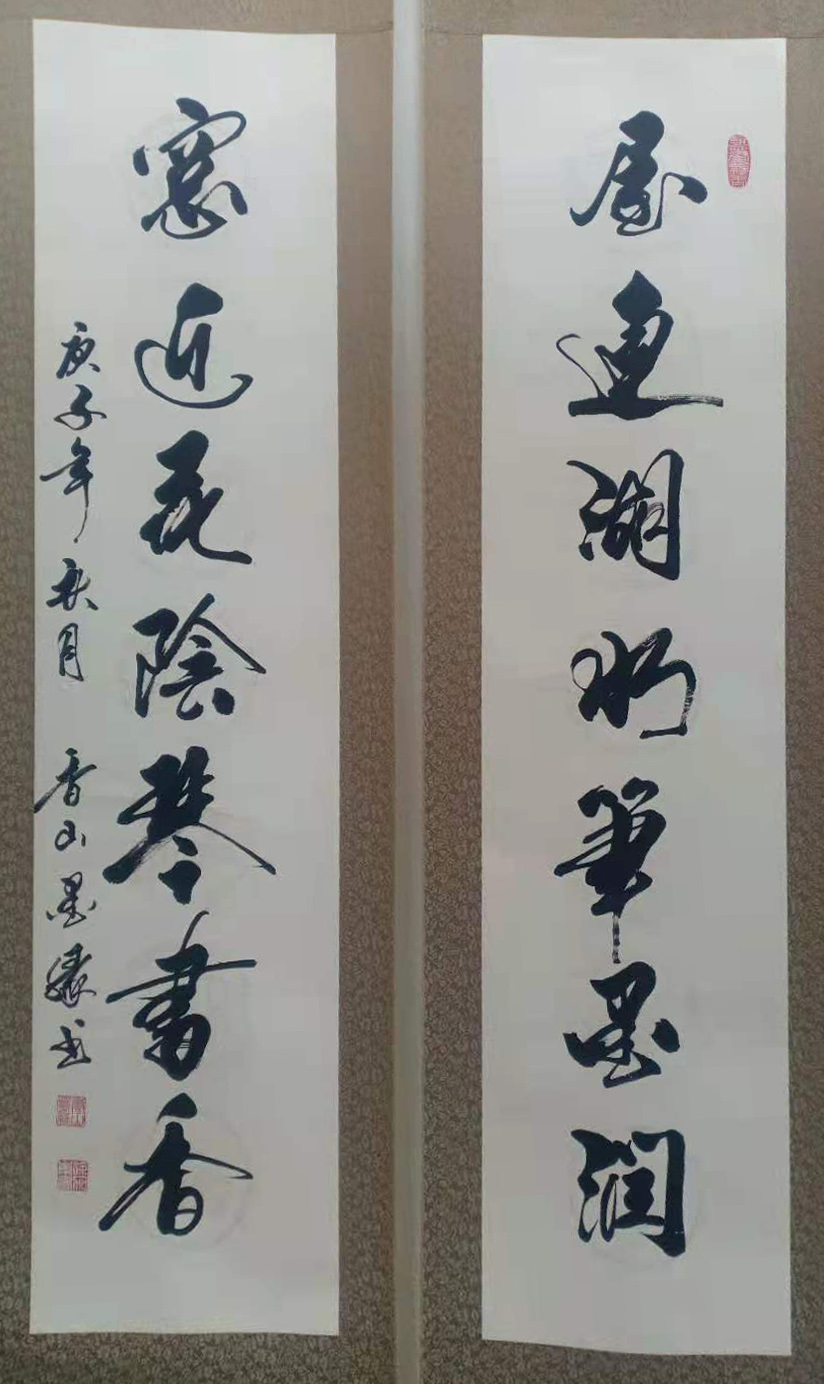 屋連湖水筆墨潤
窓近花陰琴書香
庚子年秋月 香山墨緣書